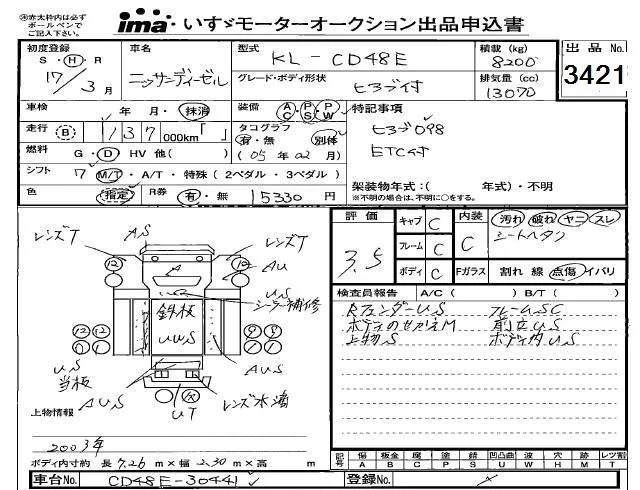 ㊟赤太枠内は必ず
ボールペンで
ご記入下さい。
ima・いすゞモーターオークション出品申込書
初度登録 S・H・R 17/3月
車名 ニッサンディーゼル
型式 KL-CD48E
積載(kg) 8200
出品No. 3421
グレード・ボディ形状 ヒラブイ付
排気量(cc) 13070
車検 年 月・抹消
装備 AC・PS・PW
特記事項
走行(B) 137,000km「 」
タコグラフ 有・無 別体
(05年02月)
ヒラブ098
ETC付
燃料 G・D HV 他( )
シフト 7 M/T・A/T・特殊(2ペダル・3ペダル)
架装物年式:( 年式)・不明
※不明の場合は、不明に○をする。
色 (指定) R券 有・無 15330円
評価 3.5
キャブ C
フレーム C
ボディ C
内装 C 汚れ 破れ ヤニ スレ
シートヘタリ
Fガラス 割れ 線 点傷 イバリ
検査員報告 A/C( ) B/T( )
RフェンダーU.S フレームSC
ボディのせかえM 前立U.S
上物S ボディ内U.S
レンズT A.S レンズT
12 12 AU
U.S
シーラー補修
鉄板
UWS
12 12 9 9
U.S
当板
AUS AUS
UT レンズ水滴
上物情報
2003年
ボディ内寸約 長7.26m×幅2.30m×高 m
記号 傷A 板金B 腐C 塗P 錆S 凹凸曲U 波W 穴H 跡M レツ割T
車台No. CD48E-30441
登録No.